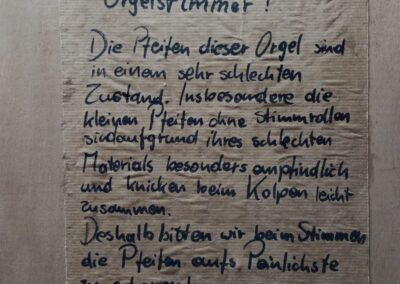 Orgelstimmer!
Die Pfeifen dieser Orgel sind
in einem sehr schlechten
Zustand. Insbesondere die
kleinen Pfeifen ohne Stimmrollen
sind aufgrund ihres schlechten
Materials besonders empfindlich
und knicken beim Kolpen leicht
zusammen.
Deshalb bitten wir beim Stimmen
die Pfeifen aufs Peinlichste